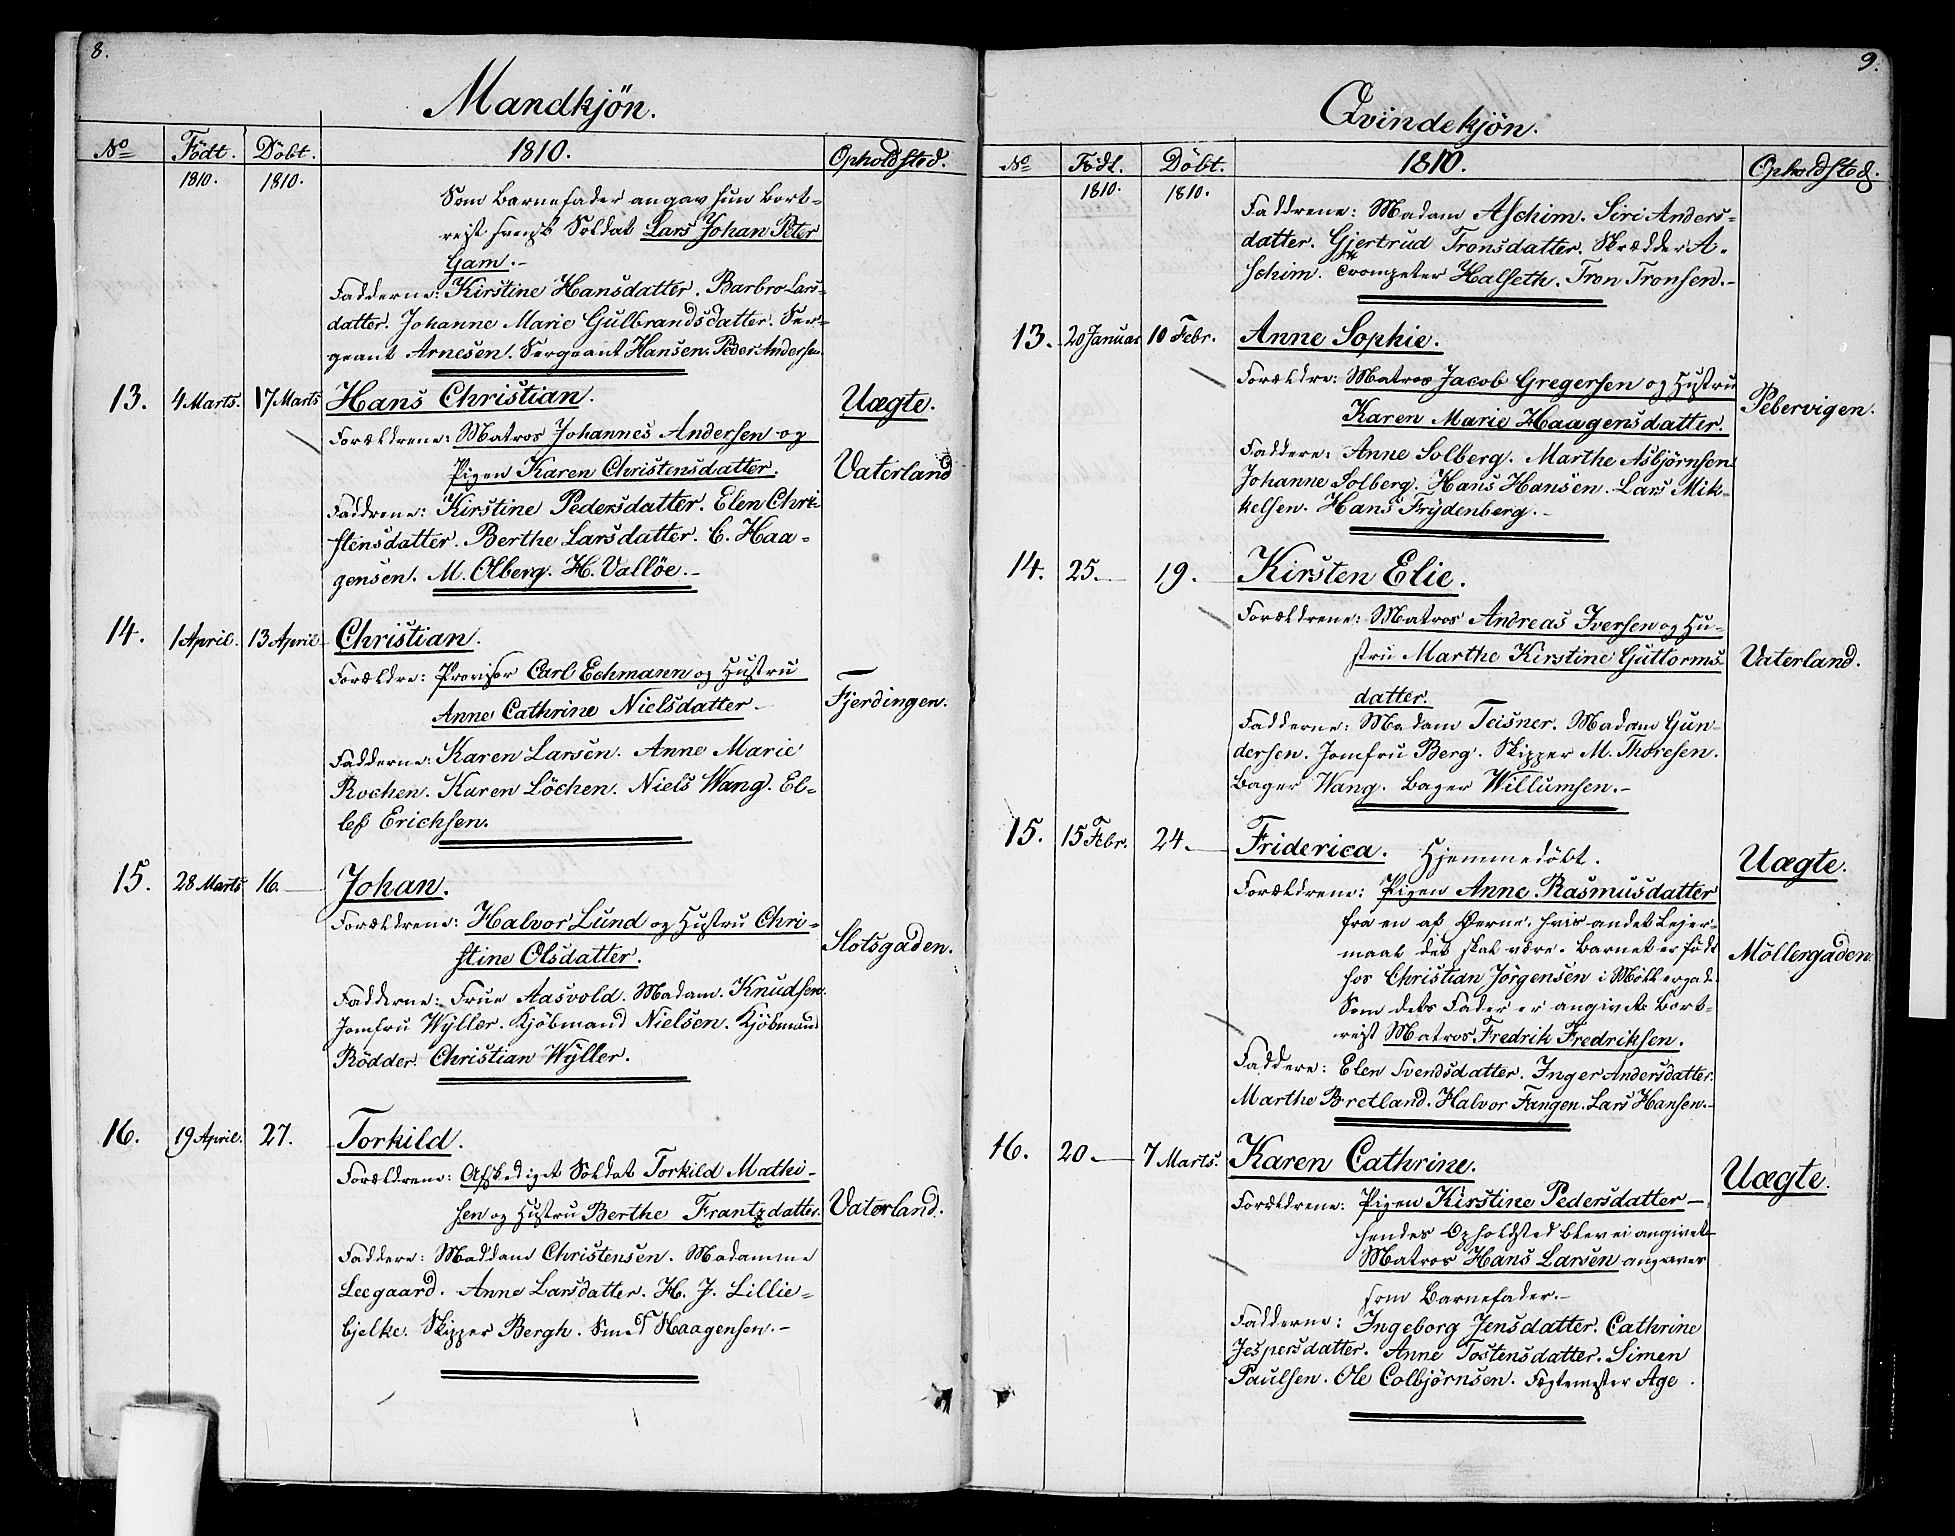 8.
Mandkjön.
No Födt. Döbt. 1810. Opholdsted.
1810. 1810.
Som Barnefader angav hun bort-
reist svensk Soldat Lars Johan Peter
Gam.-
Fadderne: Kirstine Hansdatter. Barbro Lars-
datter. Johanne Marie Gulbrandsdatter. Ser-
geant Arnesen. Sergeant Hansen. Peder Andersen
13. 4 Marts. 17 Marts Hans Christian. Uægte.
Forældrene: Matros Johannes Andersen og
Pigen Karen Christensdatter. Vaterland
Faddrene: Kirstine Pedersdatter. Elen Chri
stensdatter. Berthe Larsdatter. C. Haa-
gensen. M. Olberg. H. Vallöe.-
14. 1 April. 13 April Christian.
Forældre: Provisor Carl Echmann og Hustru
Anne Cathrine Nielsdatter.- Fjerdingen.
Fadderne: Karen Larsen. Anne Marie
Rochen. Karen Löchen. Niels Wang. El-
lef Erichsen.
15. 28 Marts 16.- Johan.
Forældrene: Halvor Lund og Hustru Chri-
stine Olsdatter. Slotsgaden.
Fadderne: Frue Aasvold. Madam. Knudsen.
Jomfru Wÿller. Kjöbmand Nielsen. Kjöbmand
Rödder. Christian Wÿller.
16. 19 April. 27. Torkild.
Forældrene: Afskediget Soldat Torkild Mathi-
sen og Hustru Berthe Frantzdatter. Vaterland.
Faddere: Maddam Christensen. Madamme
Leegaard. Anne Larsdatter. H. J. Lillie-
bjelke. Skipper Bergh. Smed Haagensen.-
9.
Qvindekjön.
No Födt. Döbt. 1810. Opholdsted.
1810. 1810.
Faddrene: Madam Aschim. Siri Anders-
datter. Gjertrud Tronsdatter. Skrædder A-
schim. Trompeter Halseth. Tron Tronsen.-
13. 20 Januar 10 Febr. Anne Sophie.
Forældre: Matros Jacob Gregersen og Hustru
Karen Marie Haagensdatter. Pebervigen.
Faddere: Anne Solberg. Marthe Asbjörnsen.
Johanne Solberg. Hans Hansen. Lars Mik-
kelsen. Hans Frÿdenberg.-
14. 25.- 19.- Kirsten Elie.
Forældrene: Matros Andreas Iversen og Hu-
stru Marthe Kirstine Guttorms Vaterland.
datter.
Fadderne: Madam Teisner. Madam Gun-
dersen. Jomfru Berg. Skipper M. Thoresen.
Bager Wang. Bager Willumsen.-
15. 15 Febr. 24.- Friderica. Hjemmedöbt. Uægte.
Forældrene: Pigen Anne Rasmusdatter
fra en af Øerne, hvis andet Leier-
maal det skal være. Barnet er födt Möllergaden
hos Christian Jörgensen i Möllergad.
Som dets Fader er angivet bort-
reist Matros Fredrik Fredriksen.
Faddere: Elen Svendsdatter. Inger Andersdatter.
Marthe Bretland. Halvor Fangen. Lars Hansen.-
16. 20.- 7 Marts. Karen Cathrine. Uægte.
Forældrene: Pigen Kirstine Pedersdatter-
hendes Opholdsted blev ei angivet-
Matros Hans Larsen angives
som Barnefader.-
Fadderne: Ingeborg Jensdatter. Cathrine
Jespersdatter. Anne Tostensdatter. Simen
Paulsen. Ole Colbjörnsen. Fegtemester Age.